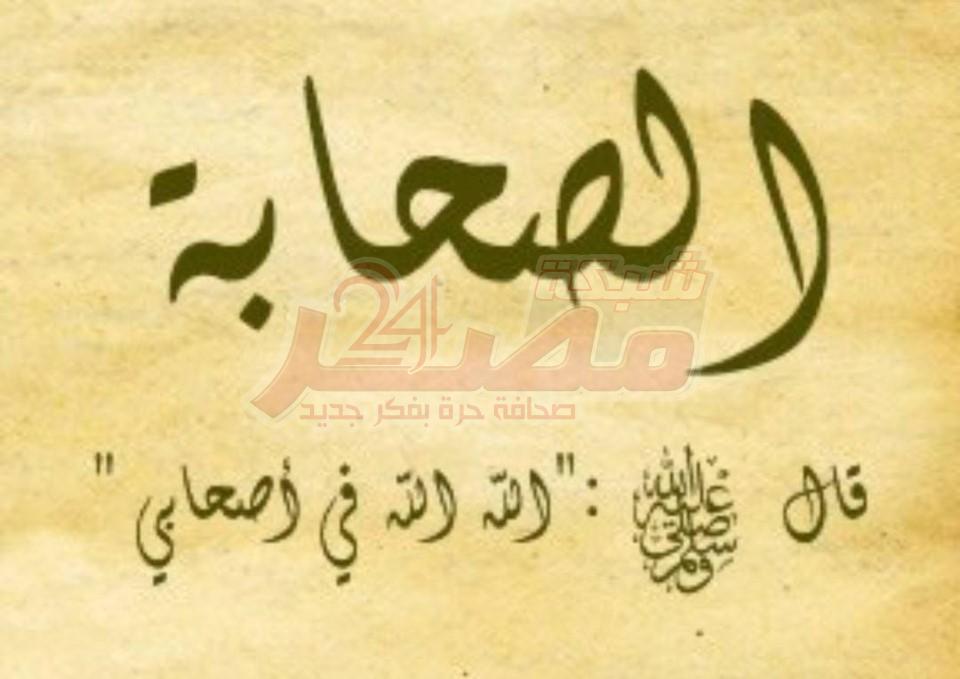 الصحابة
شبكة
مصر 24
صحافة حرة بفكر جديد
قال ﷺ : "الله الله في أصحابي"